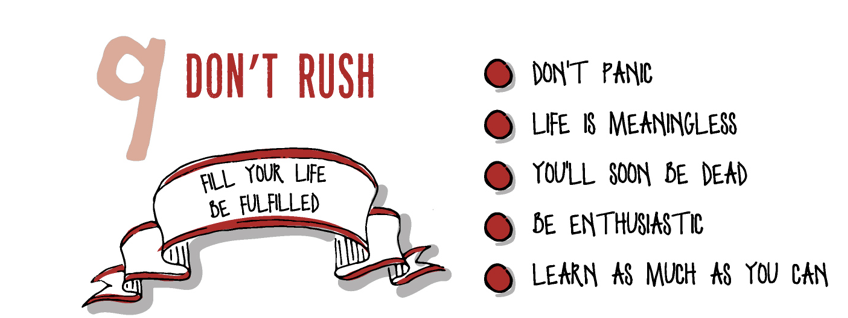 9 DON'T RUSH
FILL YOUR LIFE
BE FULFILLED
DON'T PANIC
LIFE IS MEANINGLESS
YOU'LL SOON BE DEAD
BE ENTHUSIASTIC
LEARN AS MUCH AS YOU CAN